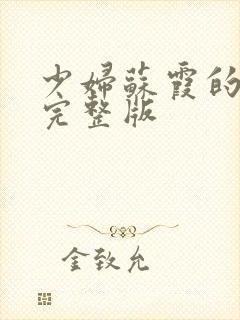 少婦蘇霞的
完整版
金致允